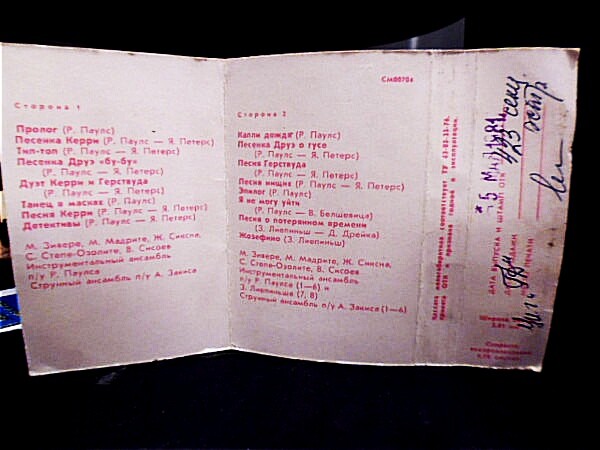 Сторона 1
Пролог (Р. Паулс)
Песенка Керри (Р. Паулс — Я. Петерс)
Тип-топ (Р. Паулс — Я. Петерс)
Песенка Друэ «бу-бу»
(Р. Паулс — Я. Петерс)
Дуэт Керри и Герствуда
(Р. Паулс — Я. Петерс)
Танец в масках (Р. Паулс)
Песня Керри (Р. Паулс — Я. Петерс)
Детективы (Р. Паулс — Я. Петерс)
М. Зивере, М. Мадрите, Ж. Сиксна,
С. Степе-Озолите, В. Сисоев
Инструментальный ансамбль
п/у Р. Паулса
Струнный ансамбль п/у А. Закиса
СМ00704
Сторона 2
Капли дождя (Р. Паулс)
Песенка Друэ о гусе
(Р. Паулс — Я. Петерс)
Песня Герствуда
(Р. Паулс — Я. Петерс)
Песня нищих (Р. Паулс — Я. Петерс)
Эпилог (Р. Паулс)
Я не могу уйти
(Р. Паулс — В. Белшевица)
Песня о потерянном времени
(З. Лиепиньш — Д. Дрейка)
Жозефино (З. Лиепиньш)
М. Зивере, М. Мадрите, Ж. Сиксна,
С. Степе-Озолите, В. Сисоев
Инструментальный ансамбль
п/у Р. Паулса (1—6) и
З. Лиепиньша (7, 8)
Струнный ансамбль п/у А. Закиса (1—6)
соответствует ТУ
ОТК и признана годной к эксплуатации.
1981
ДАТА ВЫПУСКА И ШТАМП ОТК
Ширина
Скорость